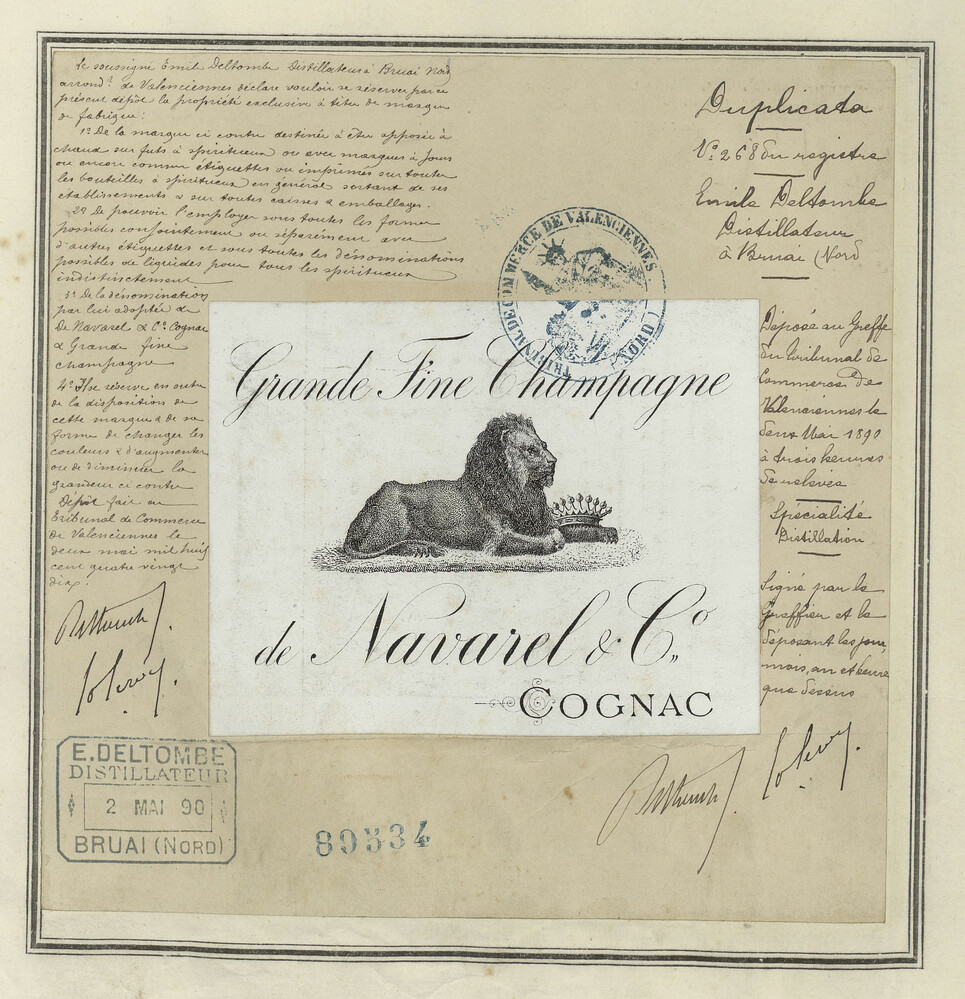 Le soussigné Emile Deltombe Distillateur à Bruai Nord
arrondt de Valenciennes déclare vouloir se réserver par ce
présent dépôt la propriété exclusive à titre de marque
de fabrique:
1º De la marque ci contre destinée à être apposée à
chaud sur futs à spiritueux ou avec marques à jours
ou encore comme étiquettes ou imprimés sur toutes
les bouteilles à spiritueux en général sortant de ses
établissements & sur toutes caisses & emballages.
2º De pouvoir l'employer sous toutes les formes
possibles conjointement ou séparément avec
d'autres étiquettes et sous toutes les dénominations
possibles ou liquides pour tous les spiritueux
indistinctement
3º De la dénomination
par lui adoptée de
De Navarel & Cº Cognac
& Grande fine
champagne
4º Il se réserve en outre
de la disposition de
cette marque & de sa
forme de changer les
couleurs & d'augmenter
ou de diminuer la
grandeur ci contre
Dépôt fait au
Tribunal de Commerce
de Valenciennes le
deux mai mil huit
cent quatre vingt
dix
Duplicata
Nº 268 du registre
Emile Deltombe
Distillateur
à Bruai (Nord
Déposé au Greffe
du tribunal de
Commerce de
Valenciennes le
deux Mai 1890
à trois heures
de relevée
Spécialité
Distillation
Signé par le
Greffier et le
déposant les jour,
mois, an et heure
que dessus
TRIBUNAL DE COMMERCE DE VALENCIENNES (NORD)
Grande Fine Champagne
de Navarel & Cº
COGNAC
E. DELTOMBE
DISTILLATEUR
2 MAI 90
BRUAI (NORD)
80534